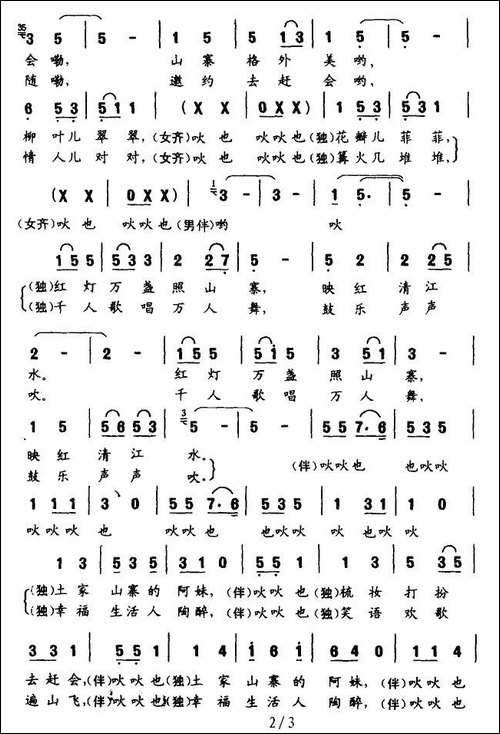 35 3 5 | 5 - | 1 5 | 5 1 3 | 1 5 | 5 - |
会嘞, 山寨格外美哟,
随嘞, 邀约去赶会哟,
6 5 3 | 5 5 1 | (X X | 0 X X) | 2 5 3 | 5 3 1 |
柳叶儿翠翠,(女齐)吙也 吙吙也(独)花瓣儿菲菲,
情人儿对对,(女齐)吙也 吙吙也(独)篝火儿堆堆,
(X X | 0 X X) | 1 3 - | 3 - | 1 5· | 5 - |
(女齐)吙也 吙吙也(男伴)哟 吙
1 5 5 | 5 3 3 | 2 2 7 | 5 - | 5 2 | 2 2 5 |
(独)红灯万盏照山寨, 映红清江
(独)千人歌唱万人舞, 鼓乐声声
2 - | 2 - | 1 5 5 | 5 1 5 | 3 5 1 | 3 - |
水。 红灯万盏照山寨,
吙。 千人歌唱万人舞,
1 5 | 5 6 5 3 | 3 5 - | 5 - | 5 5 7·6 | 5 3 5 |
映红清江水。 (伴)吙吙也 也吙吙
鼓乐声声吙。
1 1 1 | 3 0 | 5 5 7·6 | 5 3 5 | 1 3 1 | 1 0 |
吙吙吙也 吙吙也 也吙吙吙也吙
1 3 | 5 3 5 | 3 1 0 | 5 5 1 | 1 3 | 5 3 5 |
(独)土家山寨的阿妹,(伴)吙吙也(独)梳妆打扮
(独)幸福生活人陶醉,(伴)吙吙也(独)笑语欢歌
3 3 1 | 5 5 1 | 1 4 | 1 6 1 | 6 1 4 0 | 1 1 4 |
去赶会,(伴)吙吙也(独)土家山寨的阿妹,(伴)吙吙也
遍山飞,(伴)吙吙也(独)幸福生活人陶醉,(伴)吙吙也
2 / 3